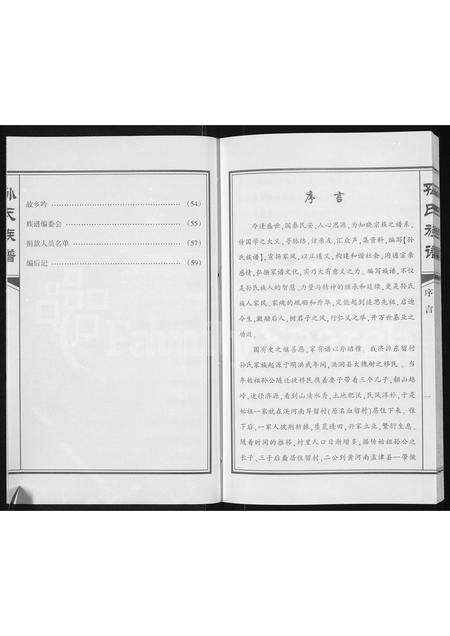 孙氏族谱
故乡吟 (54)
族谱编委会 (55)
捐款人员名单 (57)
编后记 (59)
序言
今逢盛世,国泰民安,人心思源,为知晓宗族之谱系,
传国学之大义,寻脉络,访亲友,汇众声,集资料,编写【孙
氏族谱】,宣扬家风,以正道义,构建和谐社会,沟通宗亲
感情,弘扬家谱文化,实乃大有意义之为。编写族谱,不仅
是孙氏族人的智慧、力量与精神的继承和延续,更是孙氏
族人家风、家魂的砥砺和升华,定能起到追思先祖,启迪
今生,激励后人,树君子之风,行仁义之举,开万世基业之
功效。
国有史之续善恶,家有谱以序昭穆。我济源东留村
孙氏家族起源于明洪武年间,洪洞县大槐树之移民。当
年始祖孙公随迁徙移民携着妻子带着三个儿子,翻山越
岭,途经济源,看到山清水秀,土地肥沃,民风淳朴,于是
始祖一家就在溴河南岸留村(原名血留村)居住下来。住
下后,一家人披荆斩棘,垦荒造田,兴家立业,繁衍生息。
随着时间的推移,村里人口日渐增多,据传始祖孙公之
长子、三子后裔居住留村,二公到黄河南孟津县一带做
孙氏族谱
序言
一